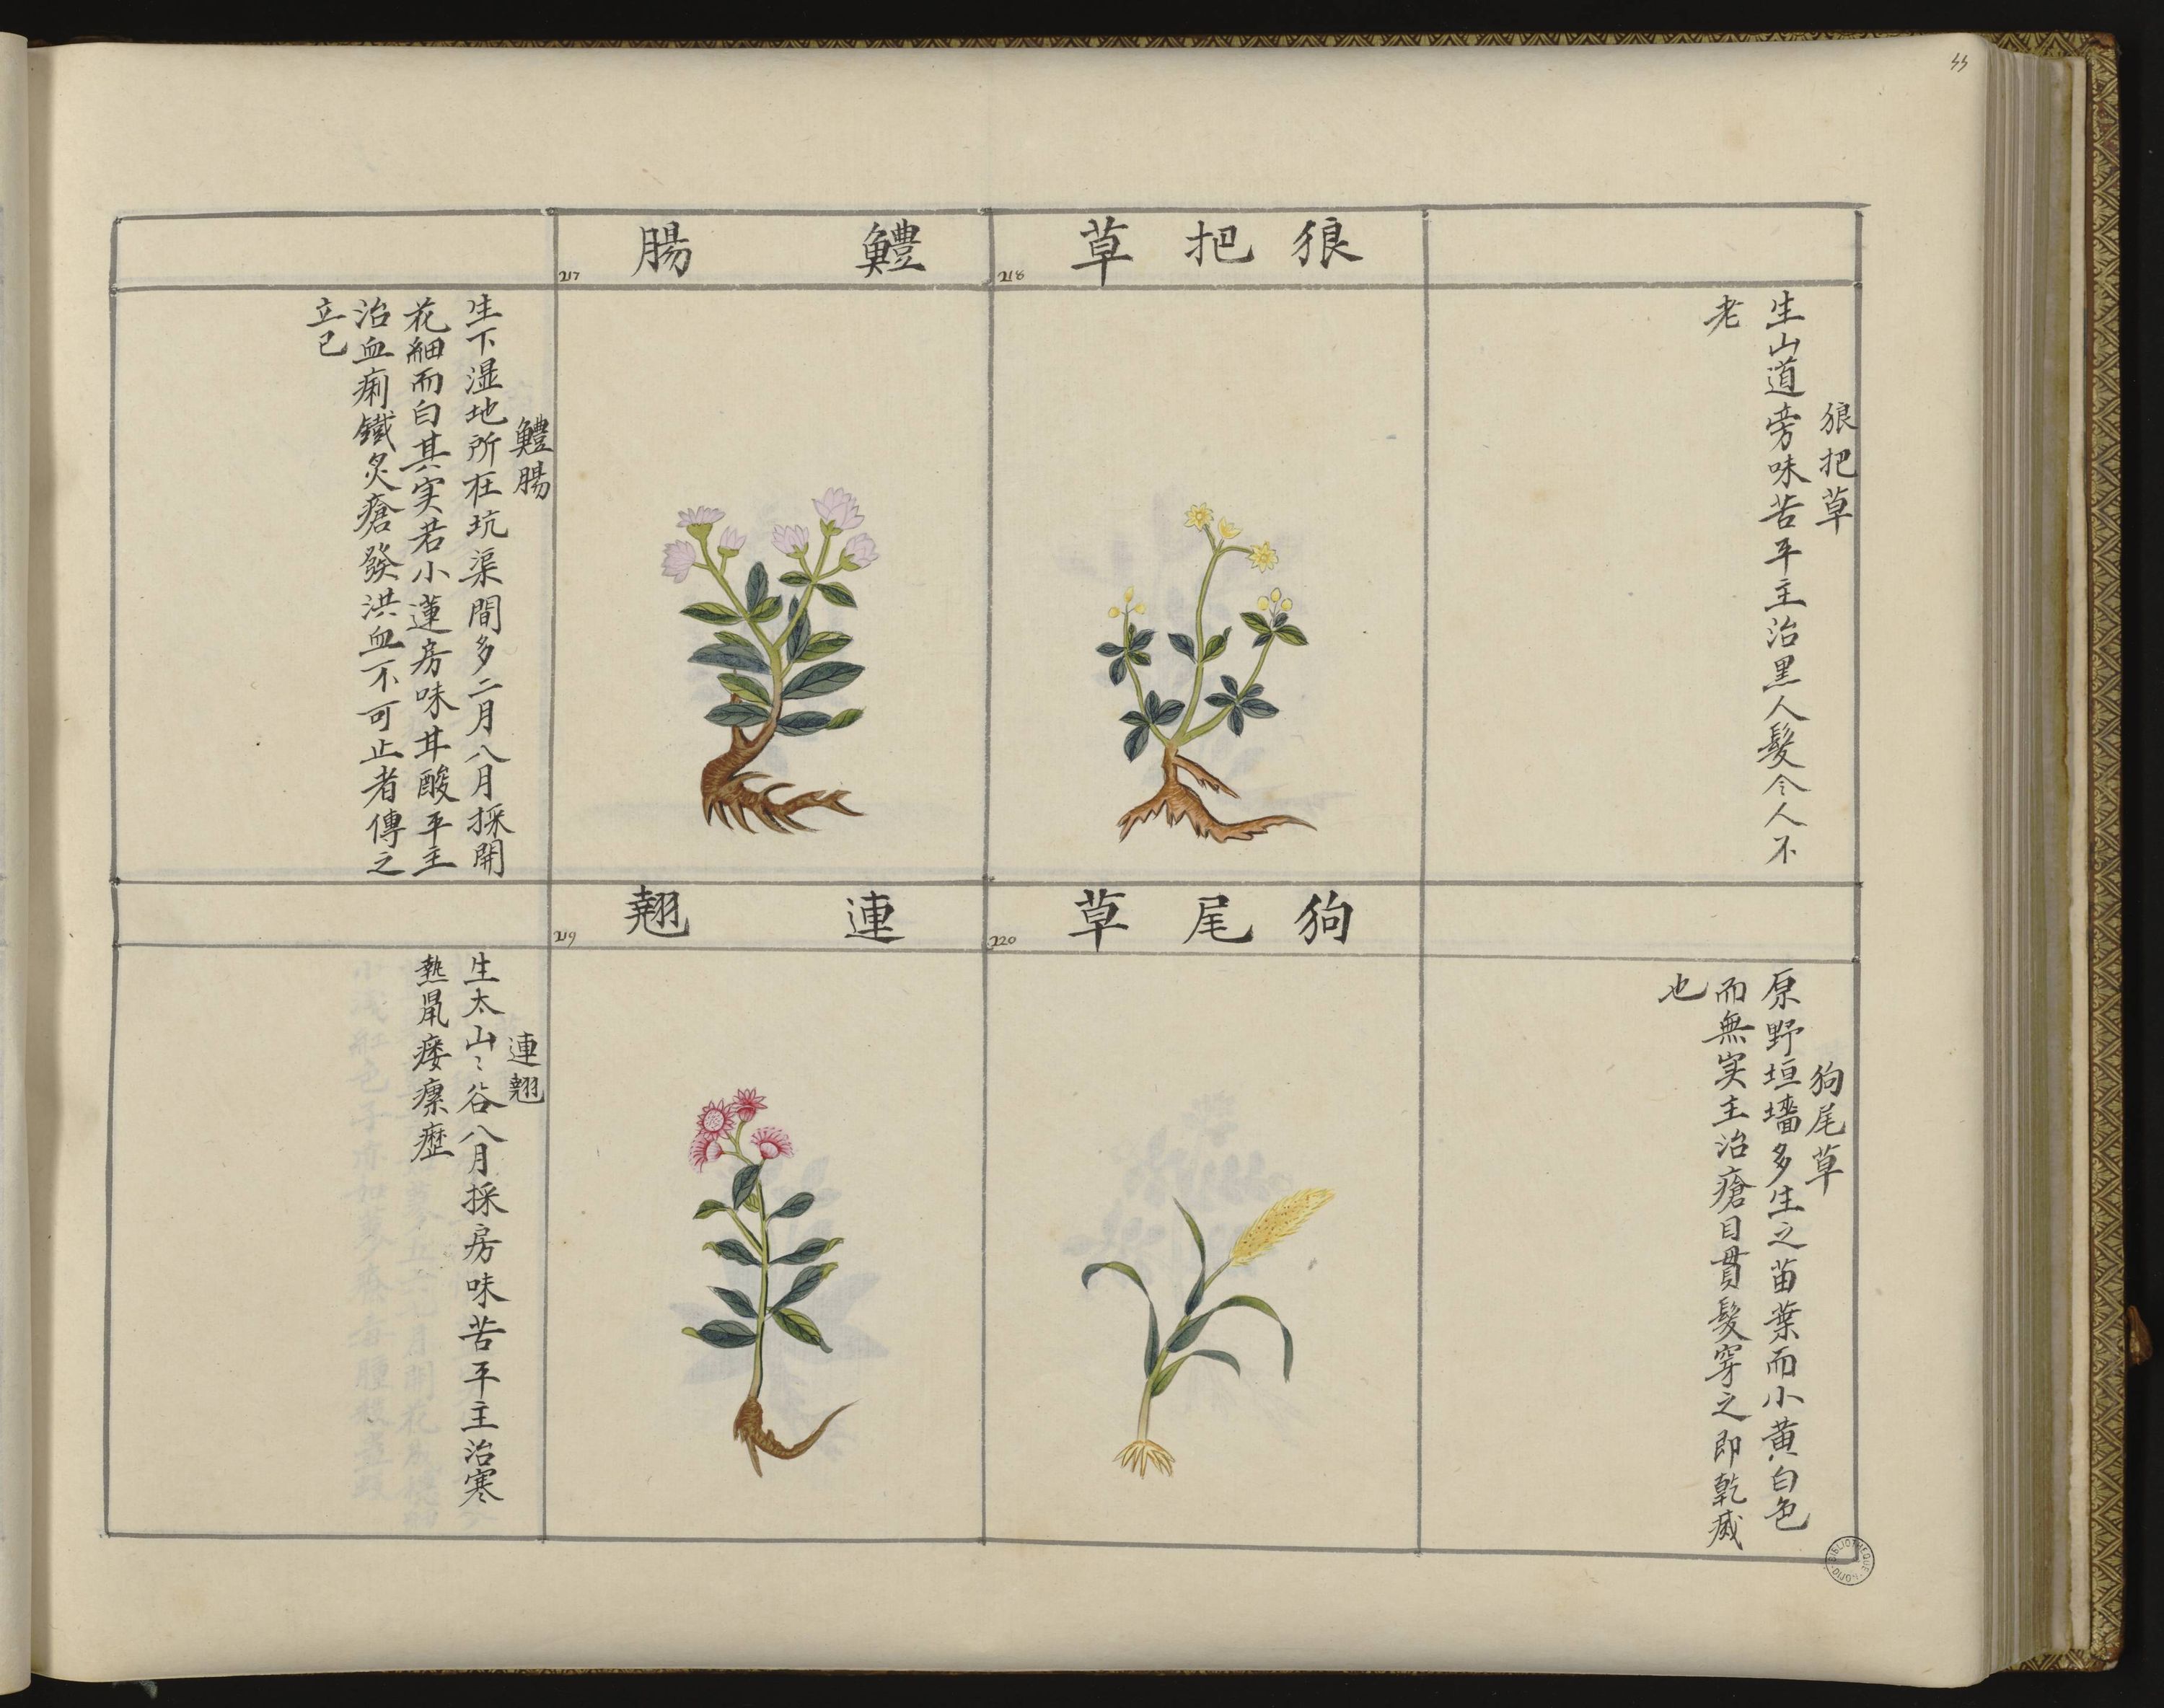 44
狼把草
218
鱧腸
217
狼把草
生山道旁味苦平主治黑人髮令人不
老
鱧腸
生下湿地所在坑渠間多二月八月採開
花細而白其实若小蓮房味甘酸平主
治血痢鐵炙瘡發洪血不可止者傅之
立已
狗尾草
220
連翹
219
狗尾草
原野垣墻多生之苗葉而小黄白色
而無实主治瘡目貫髮穿之即乾滅
也
連翹
生太山〻谷八月採房味苦平主治寒
熱鼠瘘瘰癧
BIBLIOTHEQUE